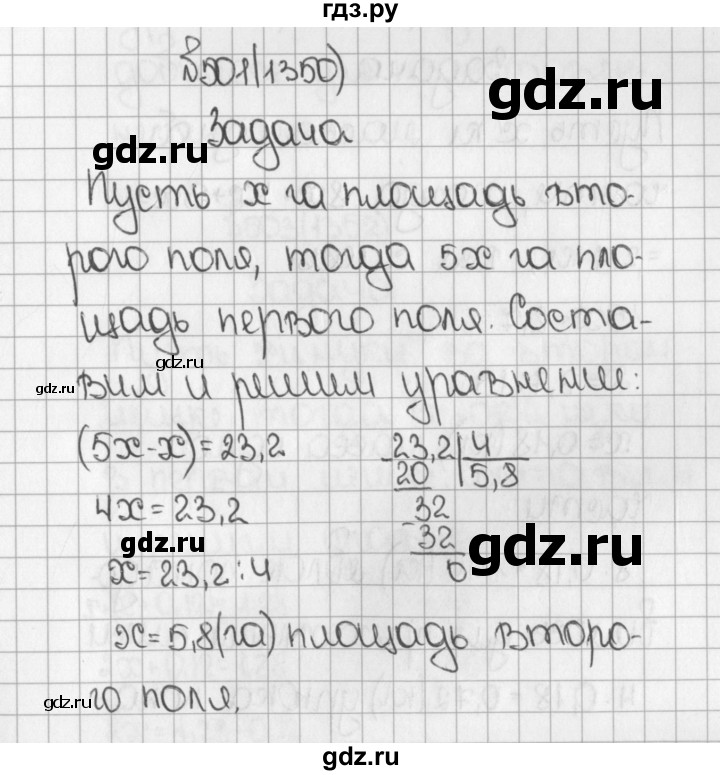 гдз.ру
№501(1350)
gdz.ru
Задача
gdz.ru
Пусть x га площадь вто-
рого поля, тогда 5x га пло-
щадь первого поля. Соста-
gdz.ru
gdz.ru
вим и решим уравнение:
(5x-x)=23,2
23,2 4
20 5,8
4x=23,2
32
32
0
gdz.ru
gdz.ru
x=23,2:4
x=5,8(га) площадь второ-
gdz.ru
го поля.
gdz.ru
gdz.ru